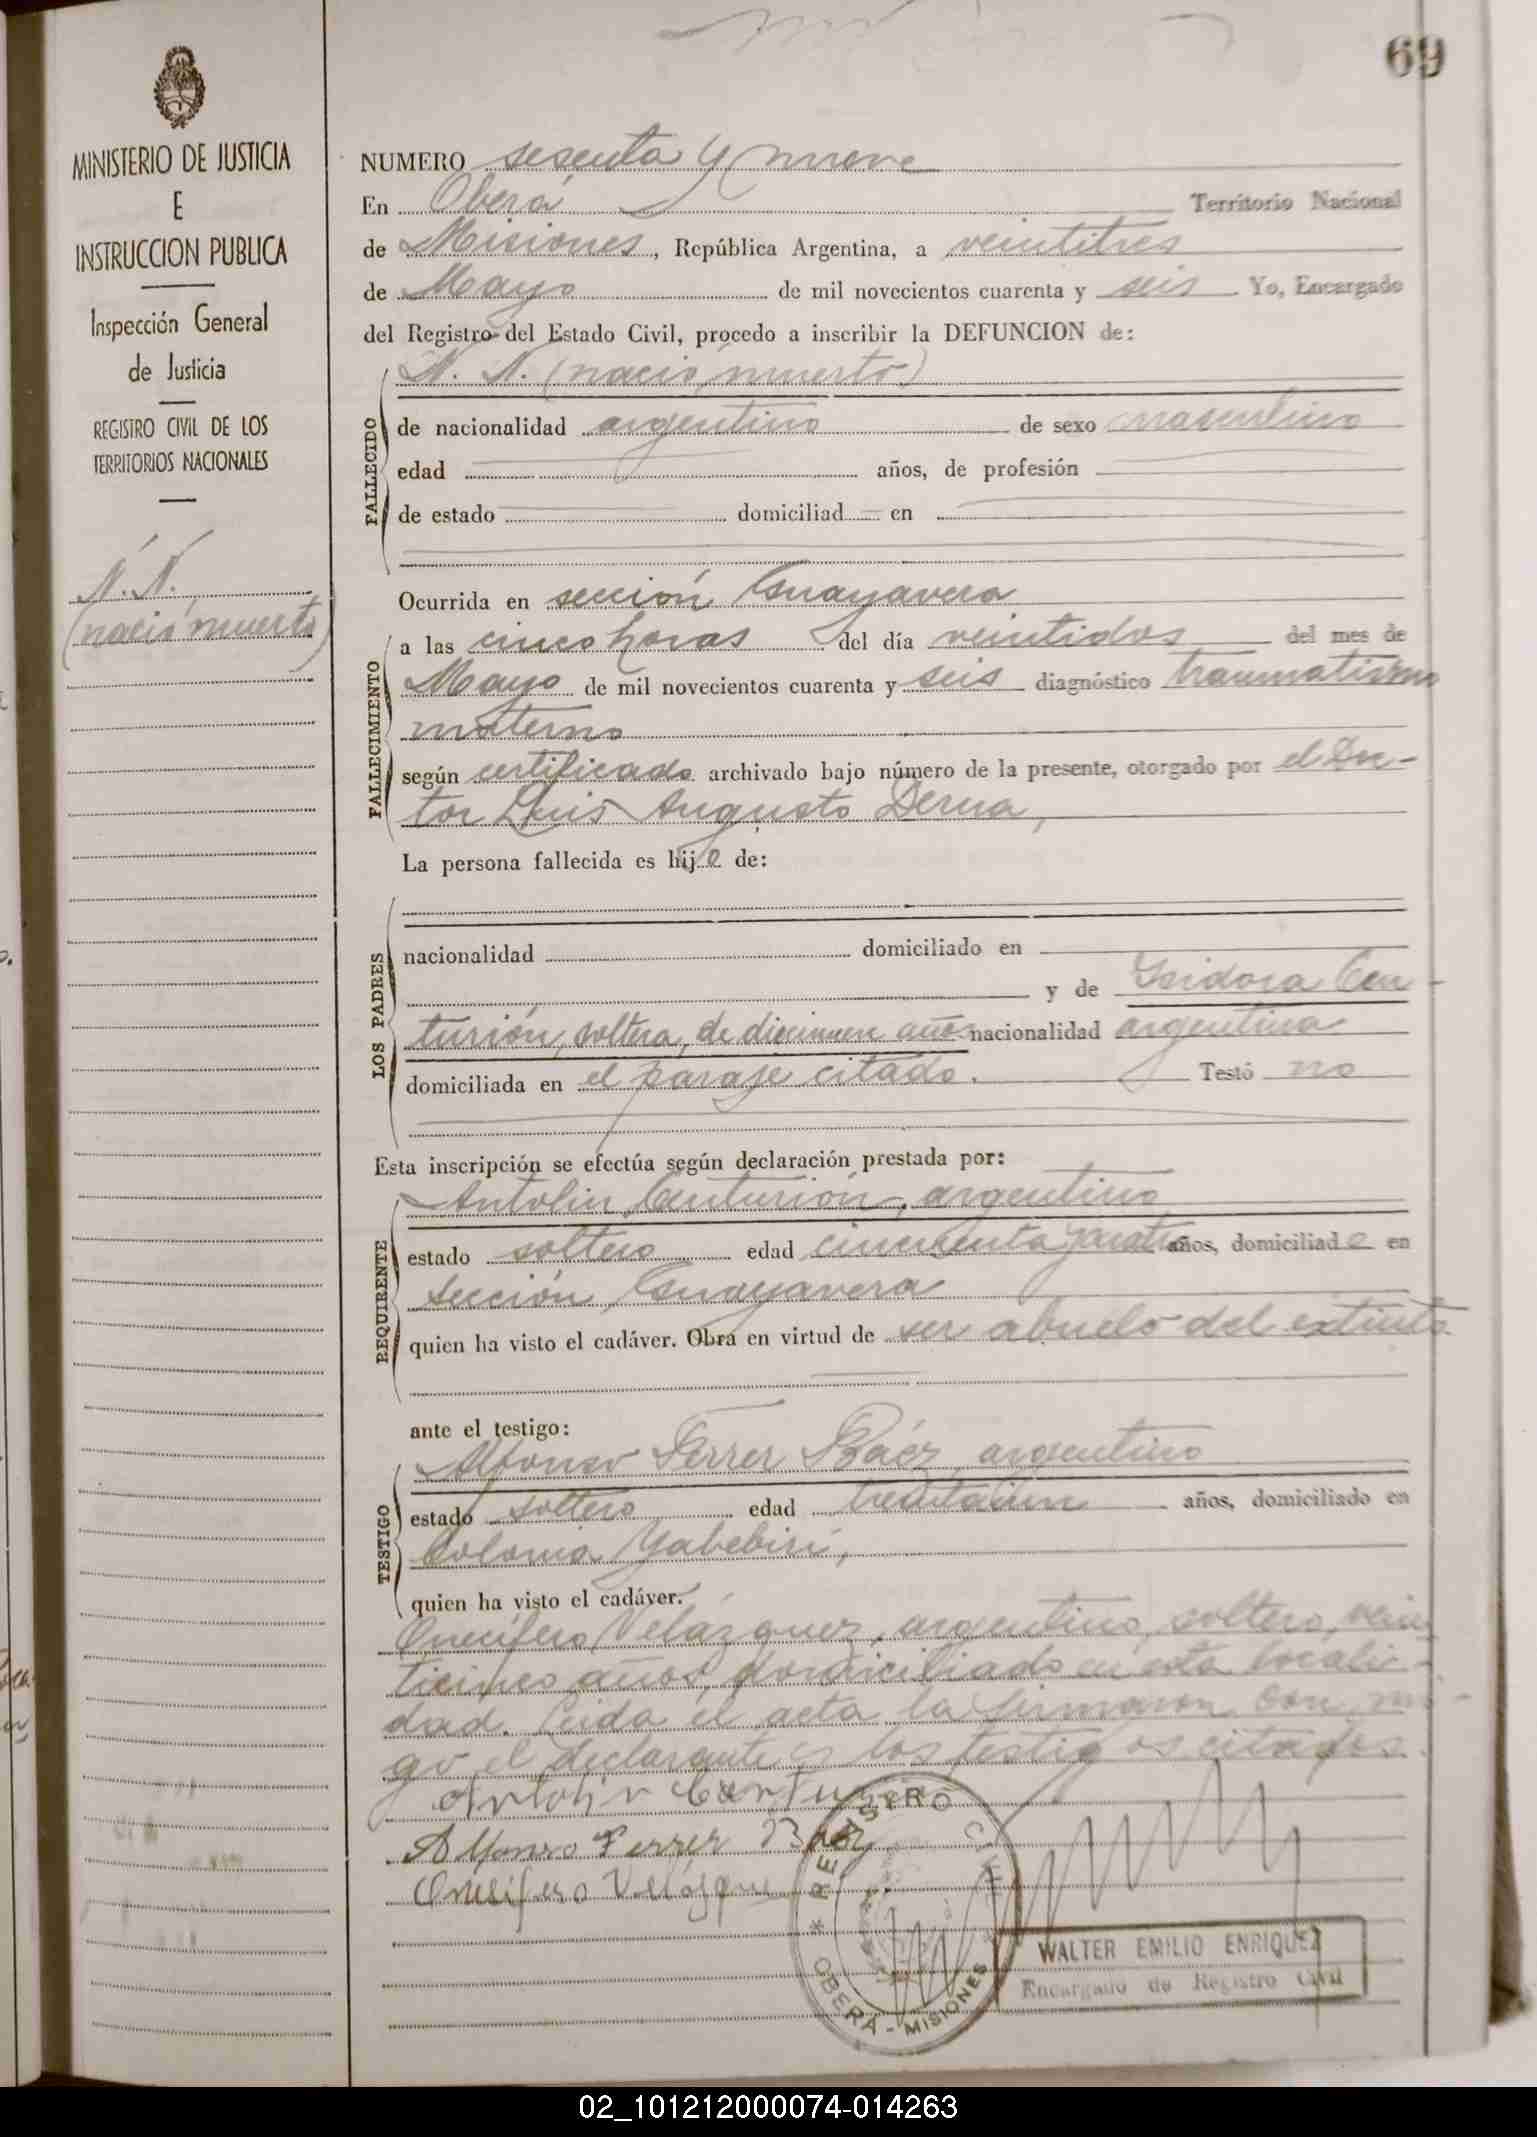 69
MINISTERIO DE JUSTICIA
E
INSTRUCCION PUBLICA
Inspección General
de Justicia
REGISTRO CIVIL DE LOS
TERRITORIOS NACIONALES
N. N.
(nació muerto)
NUMERO sesenta y nueve
En Oberá Territorio Nacional
de Misiones, República Argentina, a veintitres
de Mayo de mil novecientos cuarenta y seis Yo, Encargado
del Registro del Estado Civil, procedo a inscribir la DEFUNCION de:
N. N. (nació muerto)
FALLECIDO
de nacionalidad argentino de sexo masculino
edad años, de profesión
de estado domiciliad en
Ocurrida en sección Guayavera
a las cinco horas del día veintidos del mes de
FALLECIMIENTO
Mayo de mil novecientos cuarenta y seis diagnóstico traumatismo
materno
según certificado archivado bajo número de la presente, otorgado por el Doc-
tor Luis Augusto Derna,
La persona fallecida es hijo de:
LOS PADRES
nacionalidad domiciliado en
y de Isidora Cen-
turión, soltera, de diecinueve años nacionalidad argentina
domiciliada en el paraje citado. Testó no
Esta inscripción se efectúa según declaración prestada por:
Antolin Centurión, argentino
REQUIRENTE
estado soltero edad cincuenta y cuatro años, domiciliado en
sección Guayavera
quien ha visto el cadáver. Obra en virtud de ser abuelo del extinto
ante el testigo:
Alfonso Ferrer Báez, argentino
TESTIGO
estado soltero edad treintaiun años, domiciliado en
Colonia Yabebirí,
quien ha visto el cadáver.
Crucífero Velázquez, argentino, soltero, vein
ticinco años, domiciliado en esta locali-
dad. Leida el acta la firmaron con mi-
go el declarante y los testigos citados.
Antolin Centurion
Alfonso Ferrer Baez
Crucifero Velázquez
REGISTRO CIVIL
* OBERA - MISIONES *
WALTER EMILIO ENRIQUEZ
Encargado de Registro Civil
02_101212000074-014263